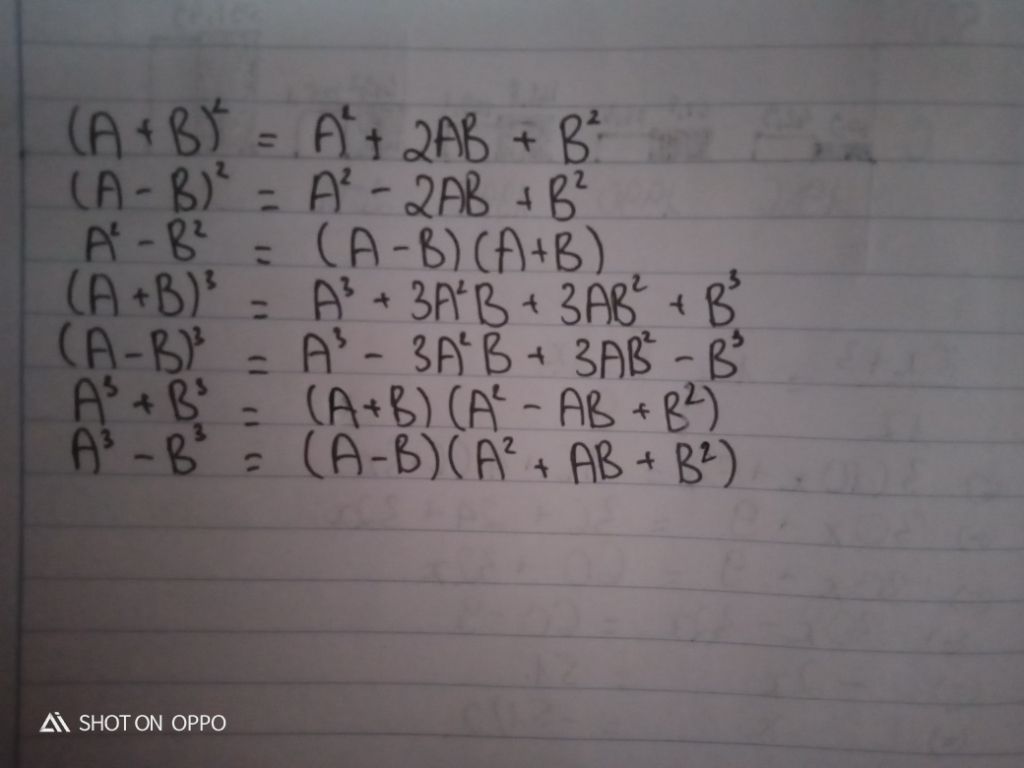 (A + B)² = A² + 2AB + B²
(A - B)² = A² - 2AB + B²
A² - B² = (A - B)(A+B)
(A +B)³ = A³ + 3A²B + 3AB² + B³
(A-B)³ = A³ - 3A²B + 3AB² - B³
A³ + B³ = (A+B)(A² - AB + B²)
A³ - B³ = (A-B)(A² + AB + B²)
SHOT ON OPPO